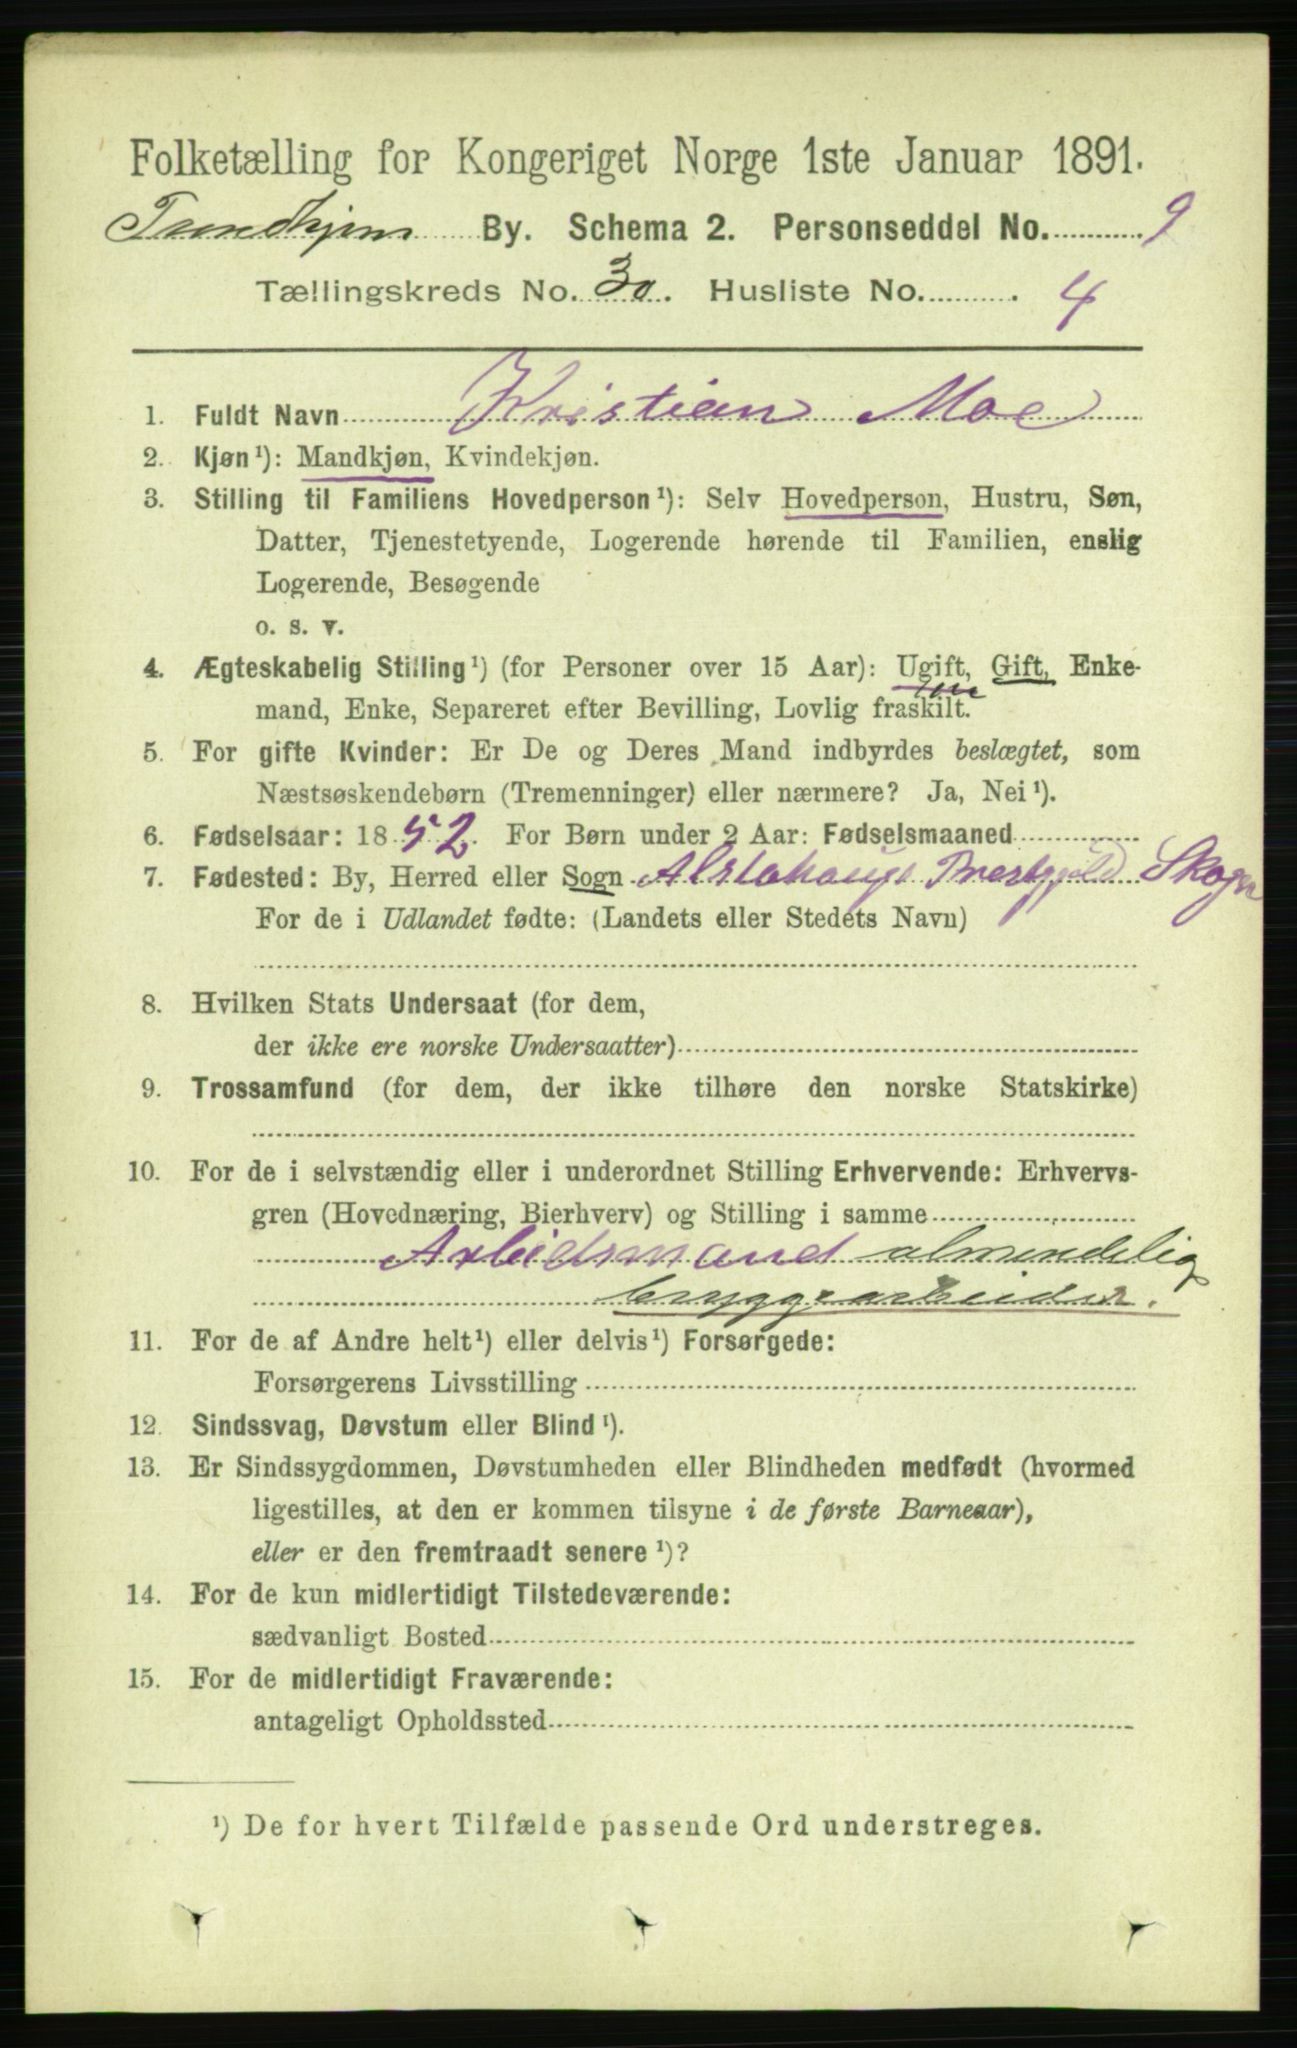 Folketælling for Kongeriget Norge 1ste Januar 1891.
Trondhjem By. Schema 2. Personseddel No. 9
Tællingskreds No. 30. Husliste No. 4
1. Fuldt Navn Kristian Moe
2. Kjøn ¹): Mandkjøn, Kvindekjøn.
3. Stilling til Familiens Hovedperson ¹): Selv Hovedperson, Hustru, Søn,
Datter, Tjenestetyende, Logerende hørende til Familien, enslig
Logerende, Besøgende
o. s. v.
4. Ægteskabelig Stilling ¹) (for Personer over 15 Aar): Ugift, Gift, Enke-
mand, Enke, Separeret efter Bevilling, Lovlig fraskilt.
5. For gifte Kvinder: Er De og Deres Mand indbyrdes beslægtet, som
Næstsøskendebørn (Tremenninger) eller nærmere? Ja, Nei ¹).
6. Fødselsaar: 1852. For Børn under 2 Aar: Fødselsmaaned
7. Fødested: By, Herred eller Sogn Alstahaugs Prestgjeld Skogn
For de i Udlandet fødte: (Landets eller Stedets Navn)
8. Hvilken Stats Undersaat (for dem,
der ikke ere norske Undersaatter)
9. Trossamfund (for dem, der ikke tilhøre den norske Statskirke)
10. For de i selvstændig eller i underordnet Stilling Erhvervende: Erhvervs-
gren (Hovednæring, Bierhverv) og Stilling i samme
Arbeidsmand almindelig
bryggearbeider.
11. For de af Andre helt ¹) eller delvis ¹) Forsørgede:
Forsørgerens Livsstilling
12. Sindssvag, Døvstum eller Blind ¹).
13. Er Sindssygdommen, Døvstumheden eller Blindheden medfødt (hvormed
ligestilles, at den er kommen tilsyne i de første Barneaar),
eller er den fremtraadt senere ¹)?
14. For de kun midlertidigt Tilstedeværende:
sædvanligt Bosted
15. For de midlertidigt Fraværende:
antageligt Opholdssted
¹) De for hvert Tilfælde passende Ord understreges.